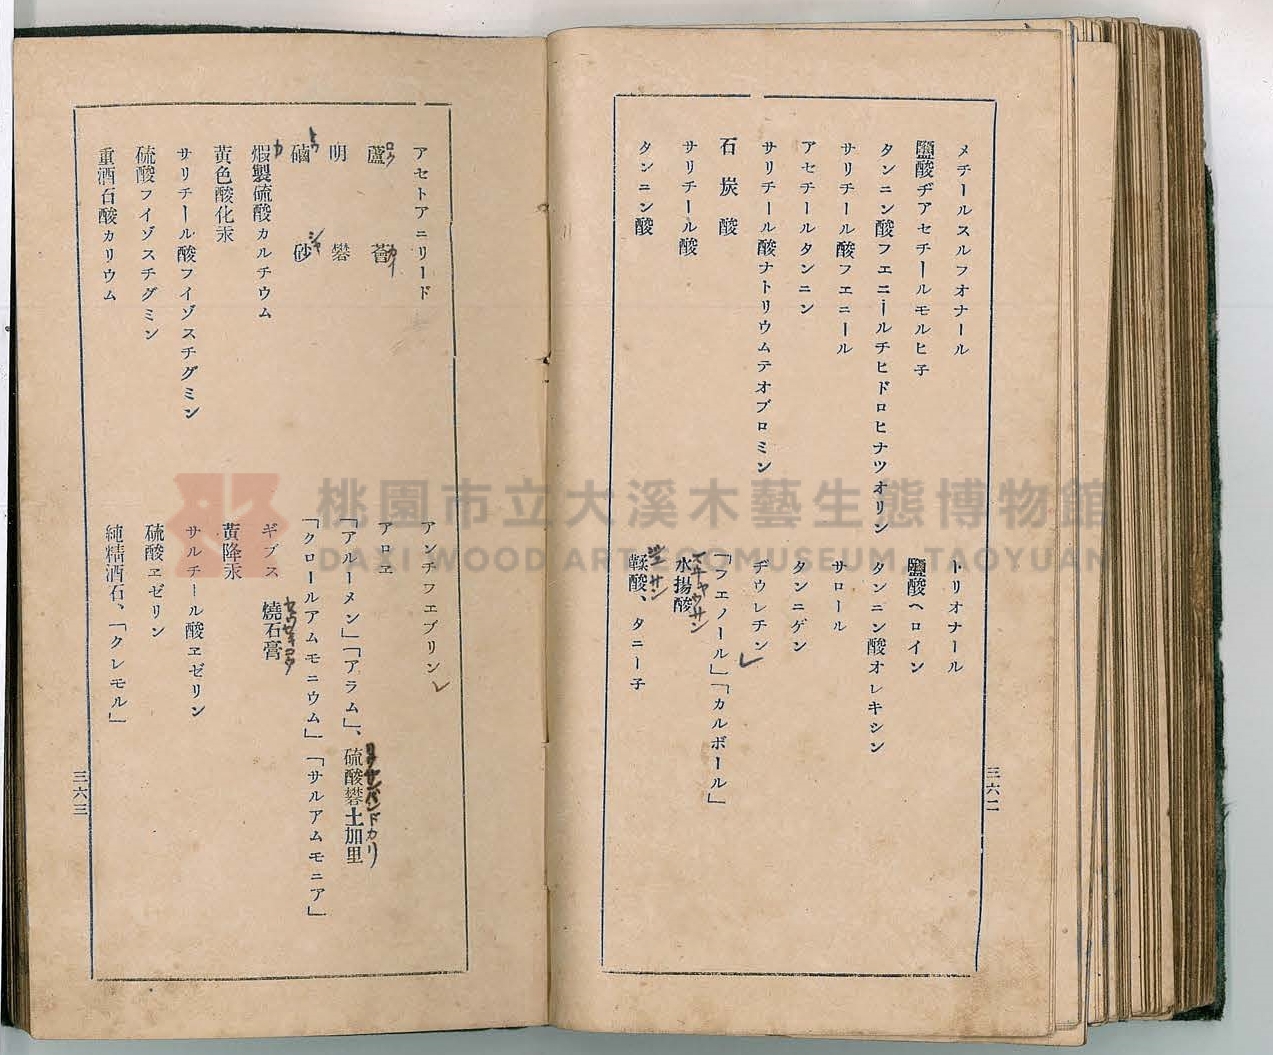 メチールスルフオナール　トリオナール
鹽酸ヂアセチールモルヒ子　鹽酸ヘロイン
タンニン酸フエニールチヒドロヒナツオリン　タンニン酸オレキシン
サリチール酸フエニール　サロール
アセチールタンニン　タンニゲン
サリチール酸ナトリウムテオブロミン　ヂウレチン
石炭酸　「フエノール」「カルボール」
サリチール酸　水揚酸
タンニン酸　鞣酸、タニー子
三六二
アセトアニリード　アンチフエブリン
蘆薈　アロヱ
明礬　「アルーメン」「アラム」、硫酸礬土加里
磠砂　「クロールアムモニウム」「サルアムモニア」
煆製硫酸カルチウム　ギプス　燒石膏
黄色酸化汞　黄降汞
サリチール酸フイゾスチグミン　サルチール酸ヱゼリン
硫酸フイゾスチグミン　硫酸ヱゼリン
重酒石酸カリウム　純精酒石、「クレモル」
三六三
ロク
カイ
トウ
シヤ
カ
セウセキコウ
リウサンバンドカリ
スヰヤウサン
サン
桃園市立大溪木藝生態博物館
DAXI WOOD ART ECOMUSEUM, TAOYUAN